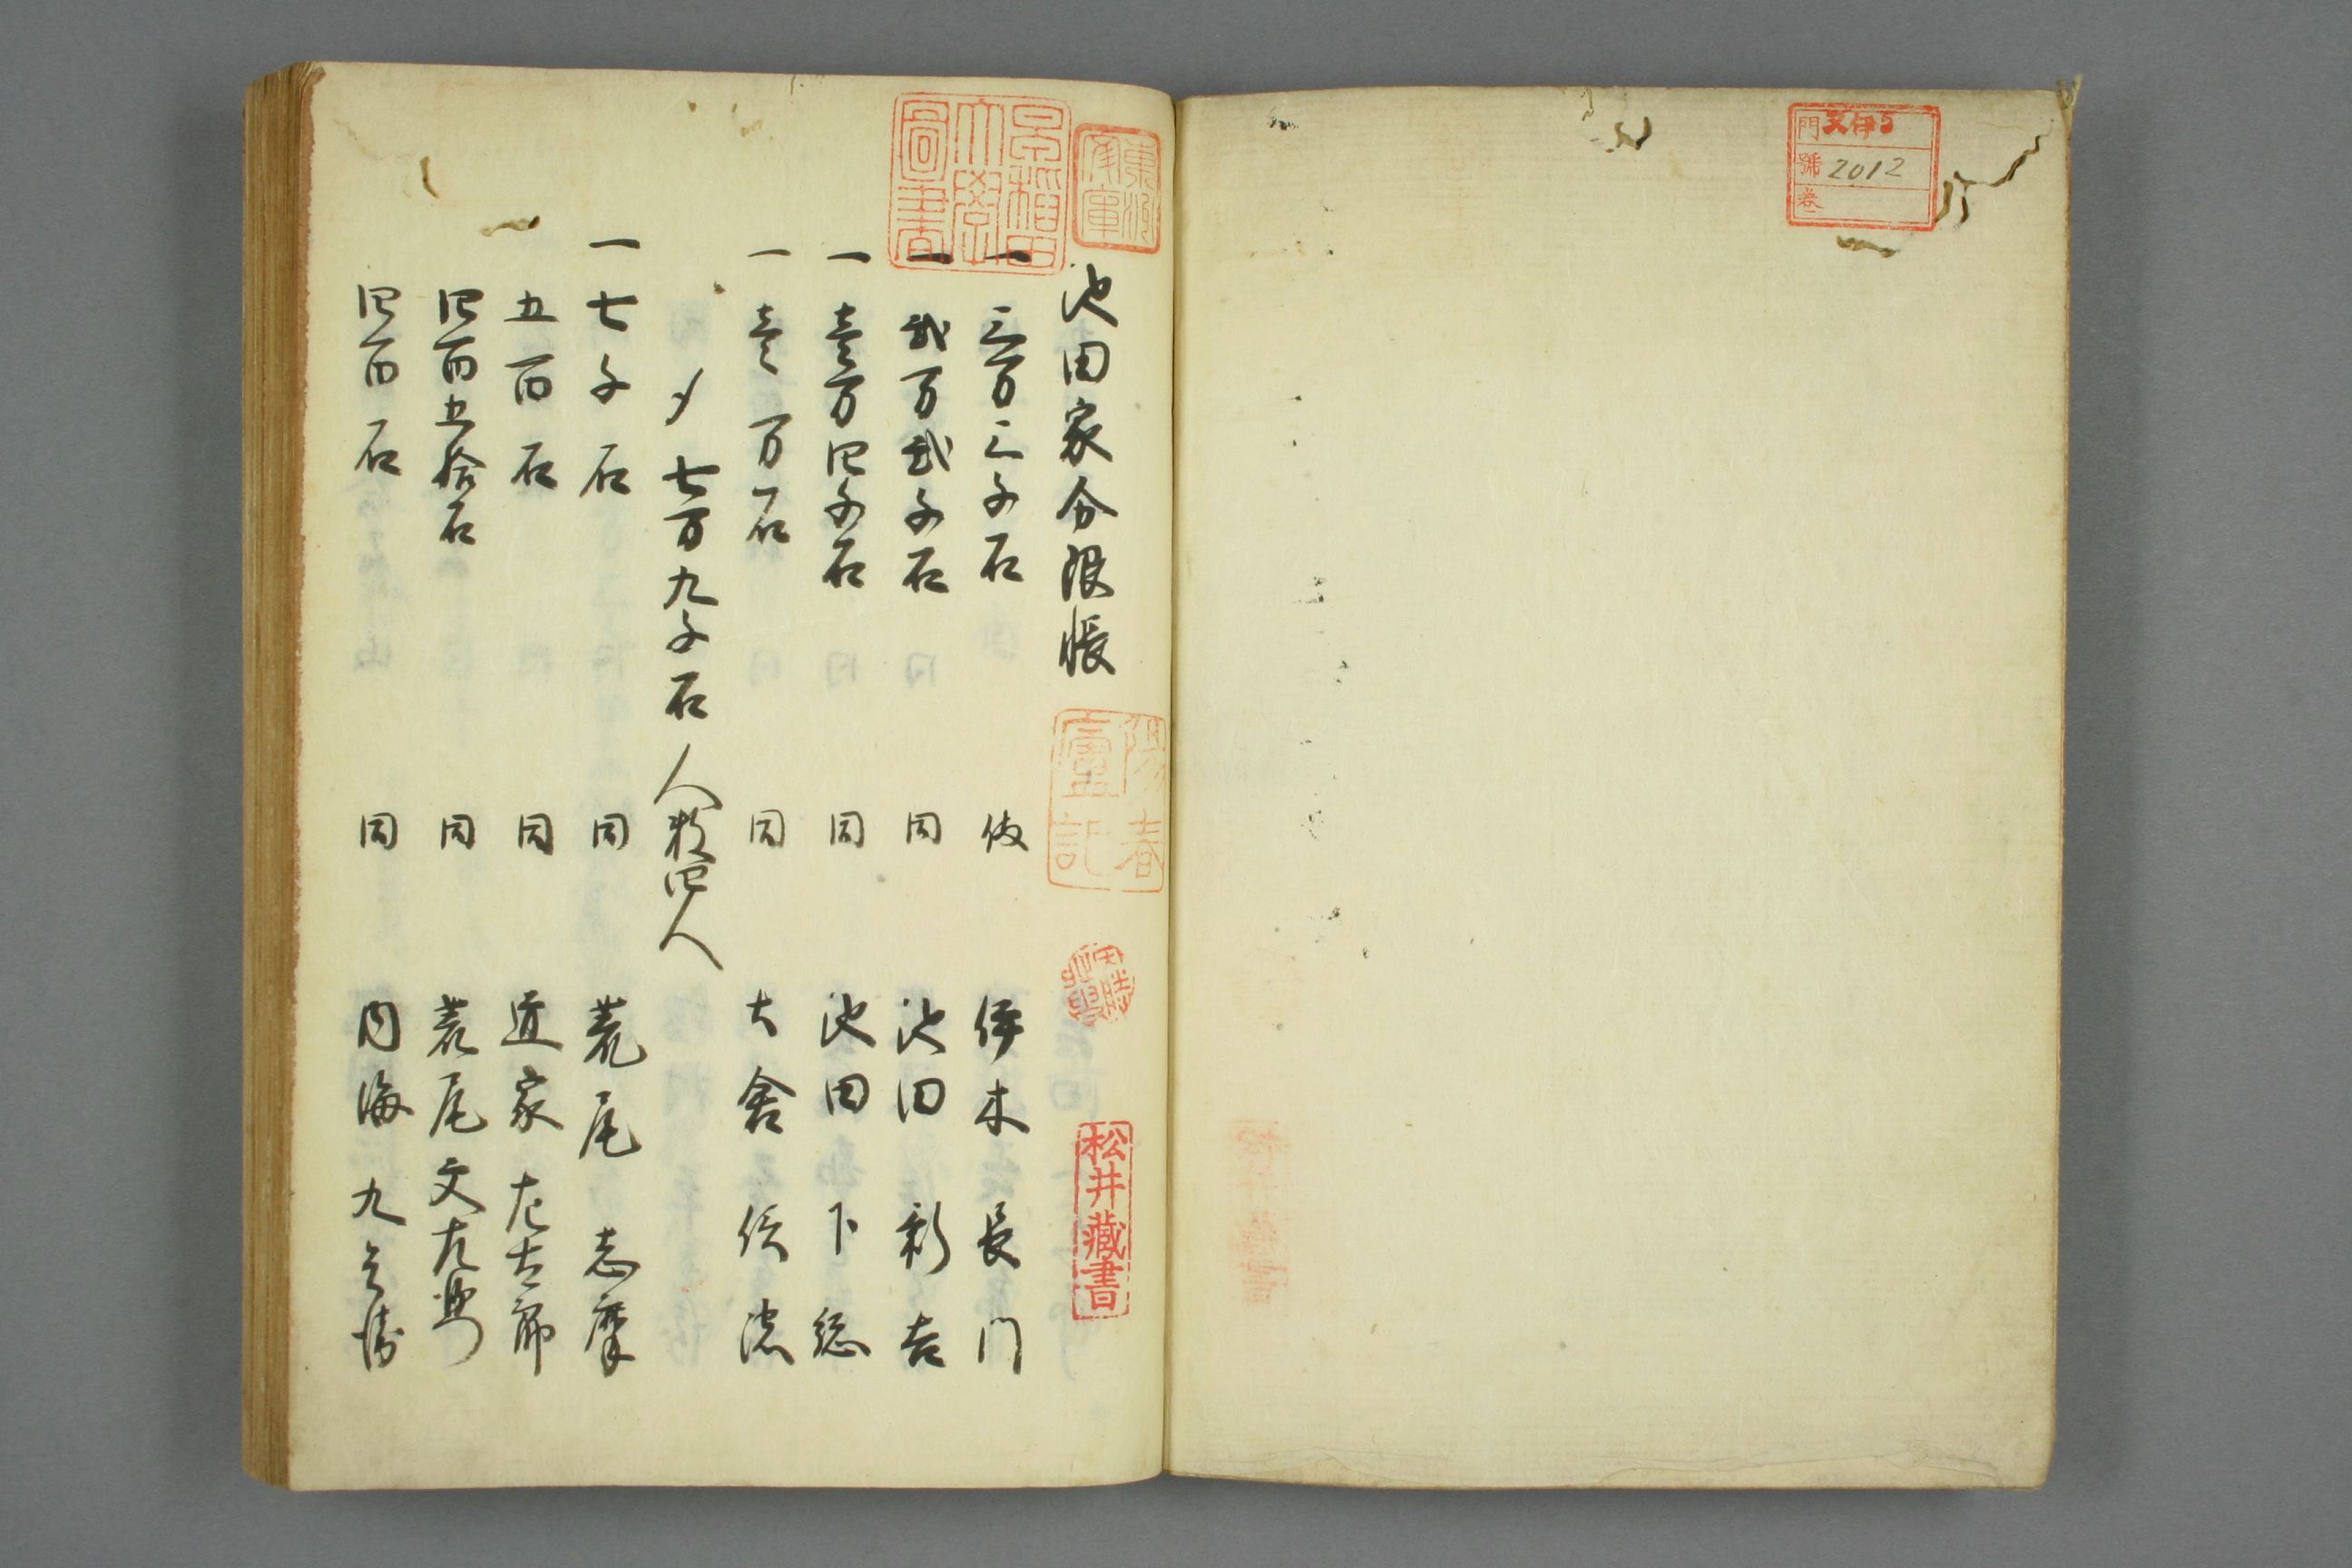 門
號 2012
卷
池田家分限帳
早稲田大學圖書
陽春臺記
松井藏書
一 三万三千石 備 伊木長門
一 弐万弐千石 同 池田新吉
一 壱万四千石 同 池田下総
一 壱万石 同 土倉信濃
〆七万九千石 人数四人
一 七千石 同 荒尾志摩
五百石 同 道家左太郎
四百五拾石 同 荒尾文左衛門
四百石 同 内海九兵衛